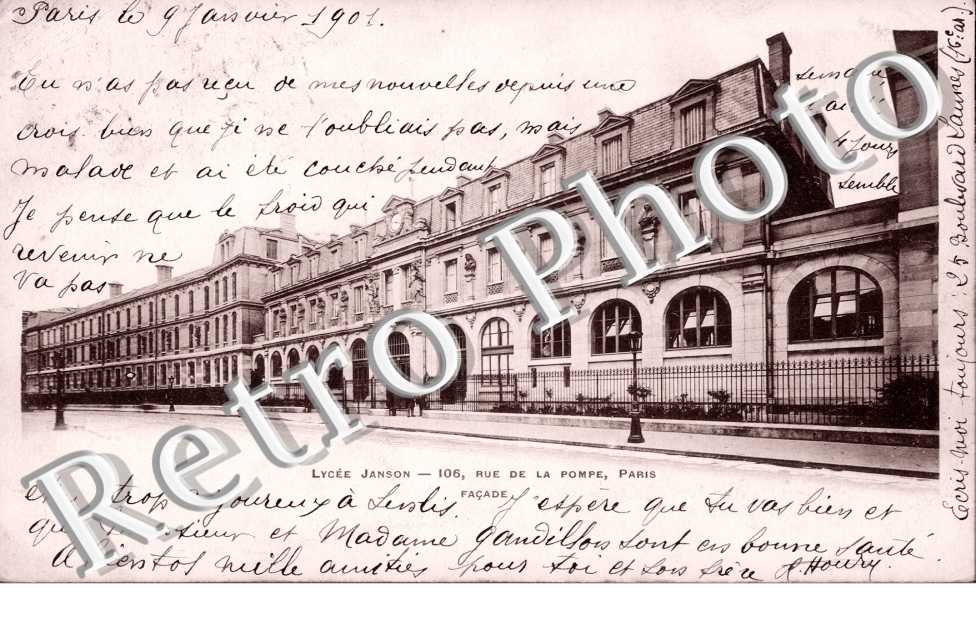 Paris le 9 Janvier 1901.
Tu n'as pas reçu de mes nouvelles depuis une semaine
crois bien que je ne t'oubliais pas, mais
malade et ai été couché pendant 4 jours
Je pense que le froid qui semble
revenir ne
va pas
LYCÉE JANSON — 106, RUE DE LA POMPE, PARIS
FAÇADE
en trop rigoureux à Senlis. J'espère que tu vas bien et
que Monsieur et Madame Gandillon sont en bonne santé
A bientôt mille amitiés pour toi et ton frère H. Houry.
Ecris-moi toujours : 25 Boulevard Lannes (16e ar.)
Retro Photo
Retro Photo